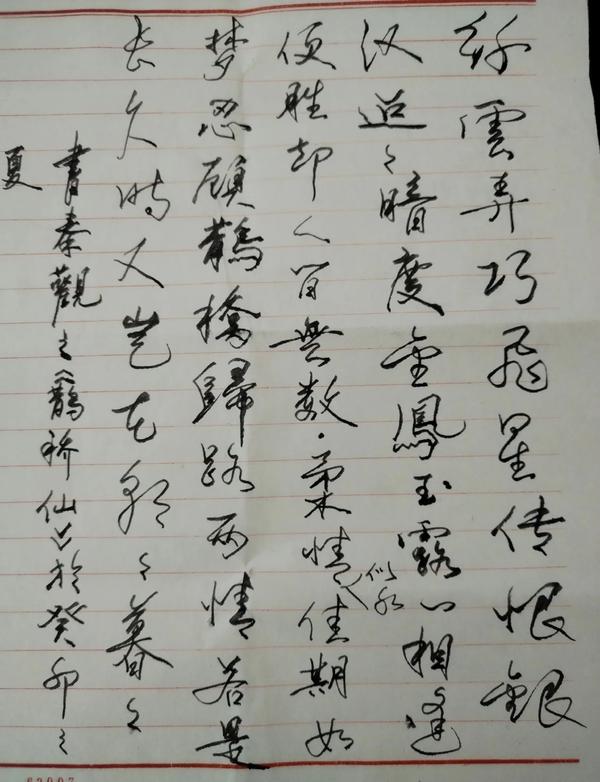 纤雲弄巧飛星传恨銀
汉迢々暗度金鳳玉露一相逢
便胜却人间無数·柔情似水佳期如
梦忍顾鵲橋歸路两情若是
长久时又岂在朝々暮々
書秦觀之《鵲桥仙》於癸卯之
夏